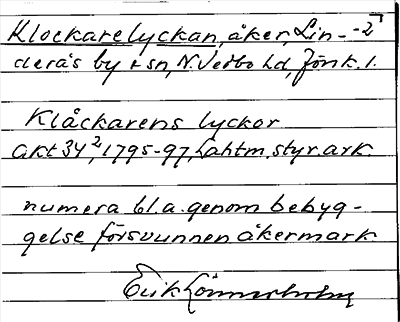 Klockarelyckan, åker, Lin- -2
derås by + sn, N. Vedbo hd, Jönk. l.
Klåckarens lyckor
akt 34², 1795-97, Lahtm. styr. ark.
numera bl. a. genom bebyg-
gelse försvunnen åkermark
Erik Lönnerholm